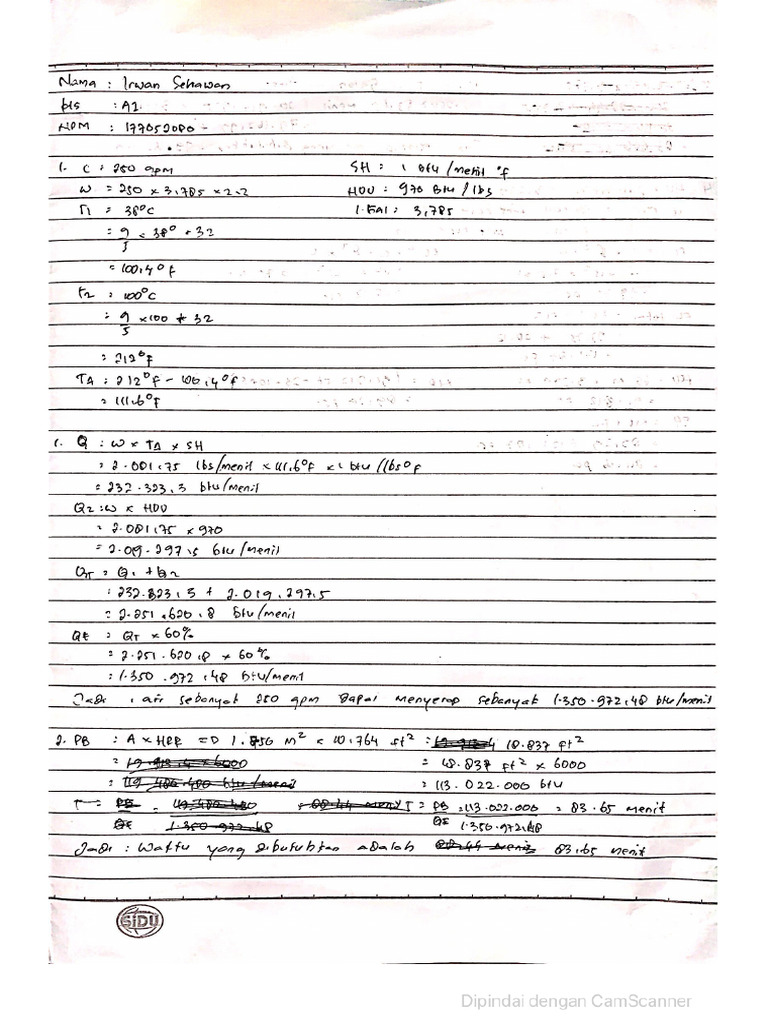 Nama : Irwan Setiawan
kls : A2
NPM : 177052080
1. C : 250 gpm SH : 1 btu/menit °f
W = 250 x 3,785 x 2.2 HOU : 970 Btu / lbs
T1 = 38°C 1. GAL : 3,785
= 9/5 x 38° + 32
= 100,4°f
T2 : 100°C
: 9/5 x 100 + 32
= 212°f
TA : 212°f - 100,4°f
= 111.6°f
1. Q : W x TA x SH
= 2.081,75 lbs/menit x 111.6°f x 1 btu / lbs°f
= 232.323,3 btu/menit
Q2 : W x HOU
= 2.081,75 x 970
= 2.019.297,5 btu/menit
QT = Q1 + Q2
: 232.323,3 + 2.019.297,5
= 2.251.620,8 btu/menit
QE : QT x 60%
= 2.251.620,8 x 60%
: 1.350.972,48 btu/menit
Jadi : air sebanyak 250 gpm dapat menyerap sebanyak 1.350.972,48 btu/menit
2. PB : A x HRR => 1.750 m² x 10.764 ft² : 18.837 ft²
= 18.837 ft² x 6000
= 113.022.000 btu
T = PB/QE = 113.022.000/1.350.972,48 = 83.65 menit
Jadi : Waktu yang dibutuhkan adalah 83,65 menit
SIDU
Dipindai dengan CamScanner